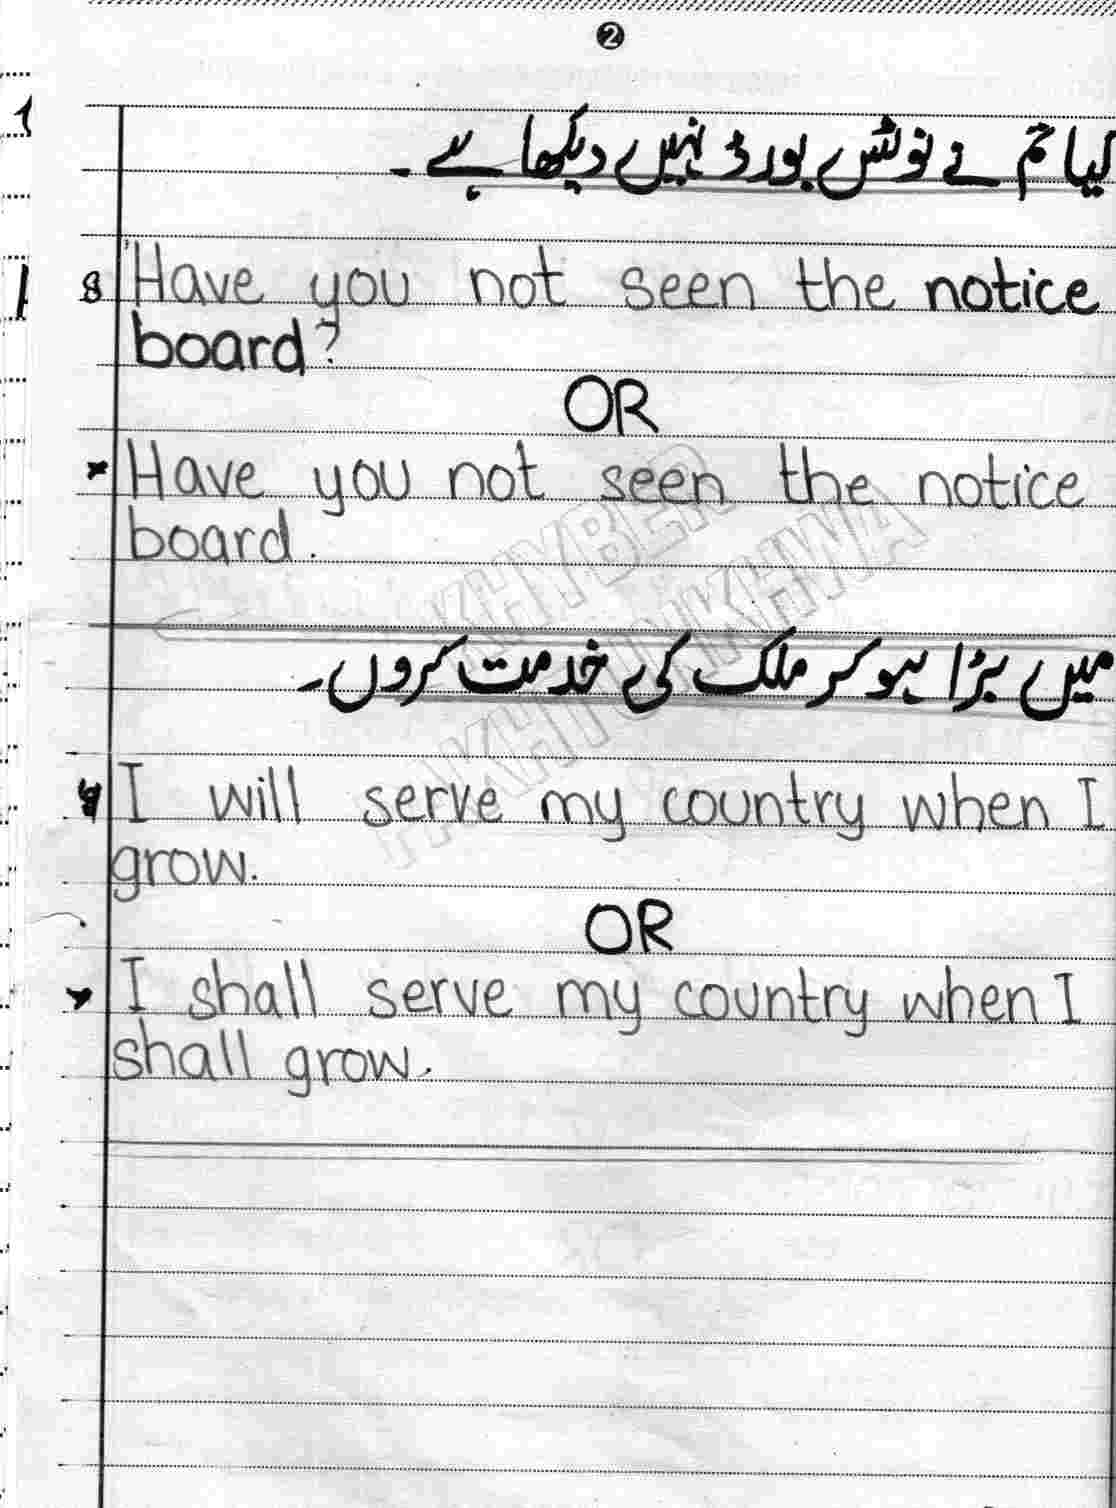 2
کیا تم نے نوٹس بورڈ نہیں دیکھا ہے ۔
8 Have you not seen the notice
board?
OR
Have you not seen the notice
board.
KHYBER
PAKHTUNKHWA
میں بڑا ہو کر ملک کی خدمت کروں ۔
9 I will serve my country when I
grow.
OR
I shall serve my country when I
shall grow.